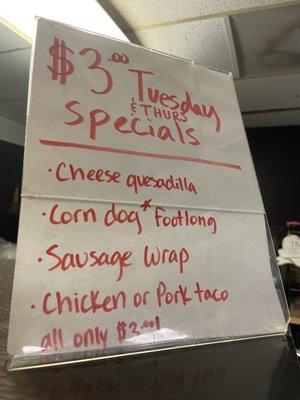 $3.00 Tuesday
& THURS
Specials
· Cheese quesadilla
· Corn dog * Footlong
· Sausage Wrap
· Chicken or Pork taco
all only $3.00!